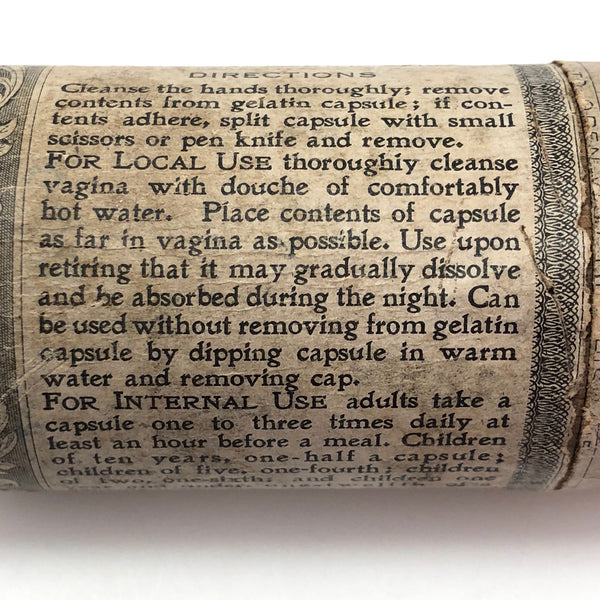 DIRECTIONS
Cleanse the hands thoroughly; remove
contents from gelatin capsule; if con-
tents adhere, split capsule with small
scissors or pen knife and remove.
FOR LOCAL USE thoroughly cleanse
vagina with douche of comfortably
hot water. Place contents of capsule
as far in vagina as possible. Use upon
retiring that it may gradually dissolve
and be absorbed during the night. Can
be used without removing from gelatin
capsule by dipping capsule in warm
water and removing cap.
FOR INTERNAL USE adults take a
capsule one to three times daily at
least an hour before a meal. Children
of ten years, one-half a capsule;
children of five, one-fourth; children
of two, one-sixth; and children one